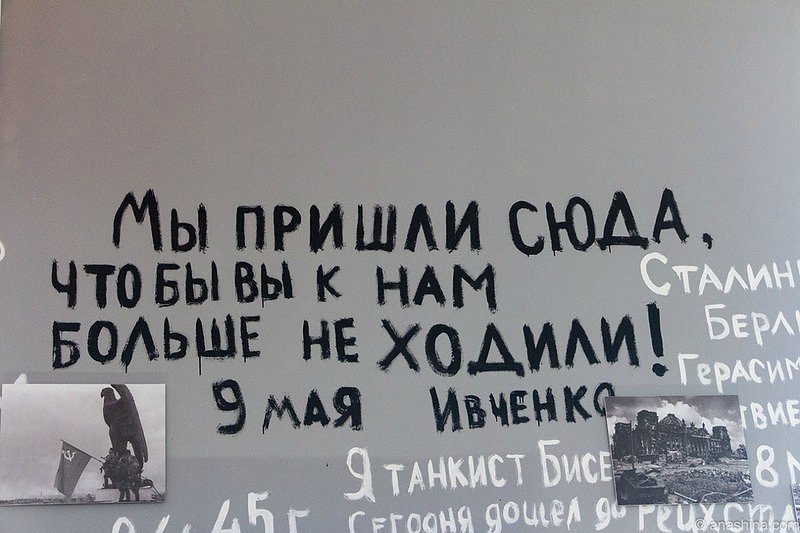 Мы пришли сюда,
чтобы вы к нам
больше не ходили!
9 мая Ивченко
Берли
Я танкист Бисе
8 м
45 г.
Сегодня дошел до
© anashina.com